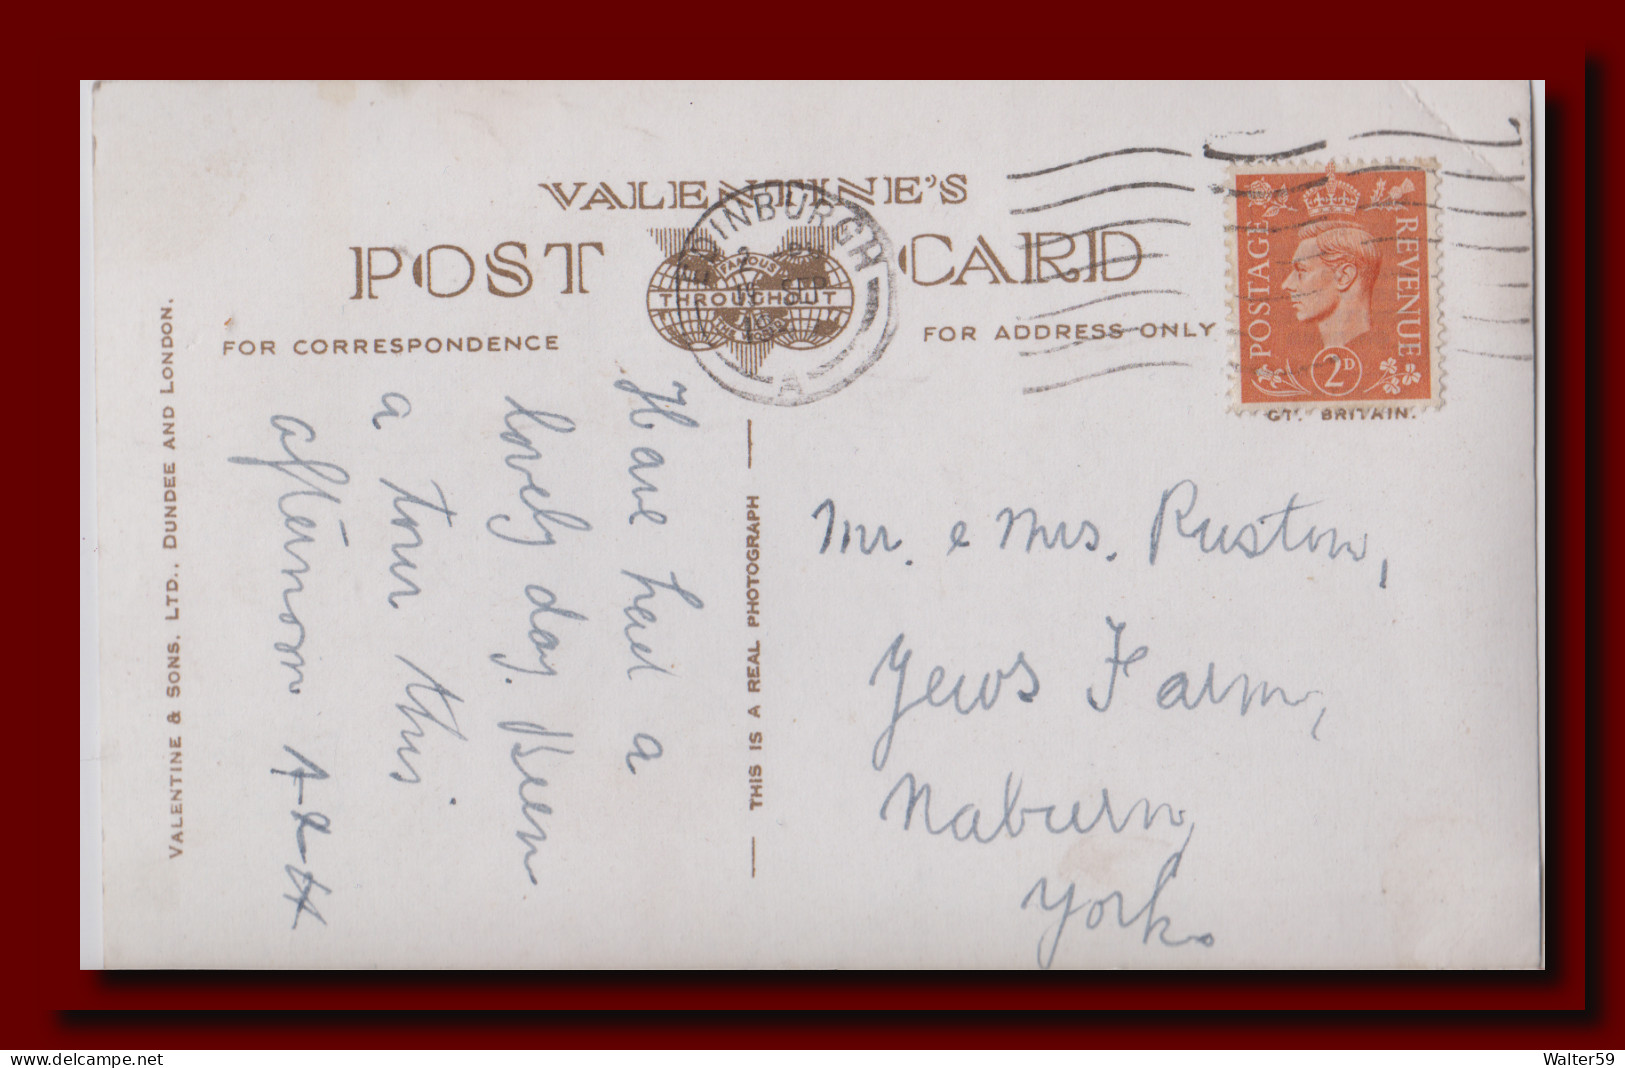 VALENTINE'S
POST CARD
FAMOUS
THROUGHOUT
THE WORLD
EDINBURGH
SEP
19
A
FOR CORRESPONDENCE
FOR ADDRESS ONLY
POSTAGE
REVENUE
2D
GT. BRITAIN.
VALENTINE & SONS. LTD., DUNDEE AND LONDON.
Have had a
lovely day. Been
a tour this
afternoon
THIS IS A REAL PHOTOGRAPH
Mr. & Mrs. Ruston,
Yews Farm,
Naburn,
York.
delcampe.net
Walter59